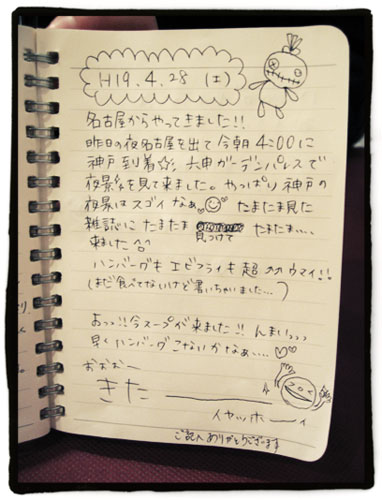 H19.4.28 (土)
名古屋からやってきました!!
昨日の夜名古屋を出て今朝4:00に
神戸到着☆彡 六甲ガーデンパレスで
夜景を見て来ました。やっぱり神戸の
夜景はスゴイなぁ たまたま見た
雑誌にたまたま 見つけて たまたま....
来ました^^
ハンバーグもエビフライも超ウマイ!!
(まだ食べてないけど書いちゃいました...)
おっっ!!今スープが来ました!!んまいっっっ
早くハンバーグこないかなぁ....♡♡
おおお〜
きた
イヤッホーーイ
ご記入ありがとうございます